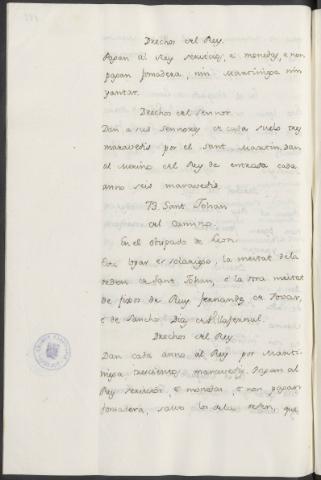 Drechos del Rey.
Pagan al Rey servicios, e monedas, e non
pagan fonsadera, nin Martiniega nin
yantar.
Drechos del Sennor.
Dan a sus sennores de cada suelo tres
maravedis por el Sant Martin, dan
al Merino del Rey de entrada cada
anno seis maravedis.
73. Sant Johan
del Camino.
En el obispado de Leon.
Este logar es solariego, la meitat de la
orden de Sant Johan, e la otra meitat
de fijos de Ruy Fernandez de Tovar,
e de Sancho Diaz de
Drechos del Rey
Dan cada anno al Rey por Marti-
niega trecientos maravedis. Pagan al
Rey servicios, e monedas, e non pagan
fonsadera, salvo los de la orden, que